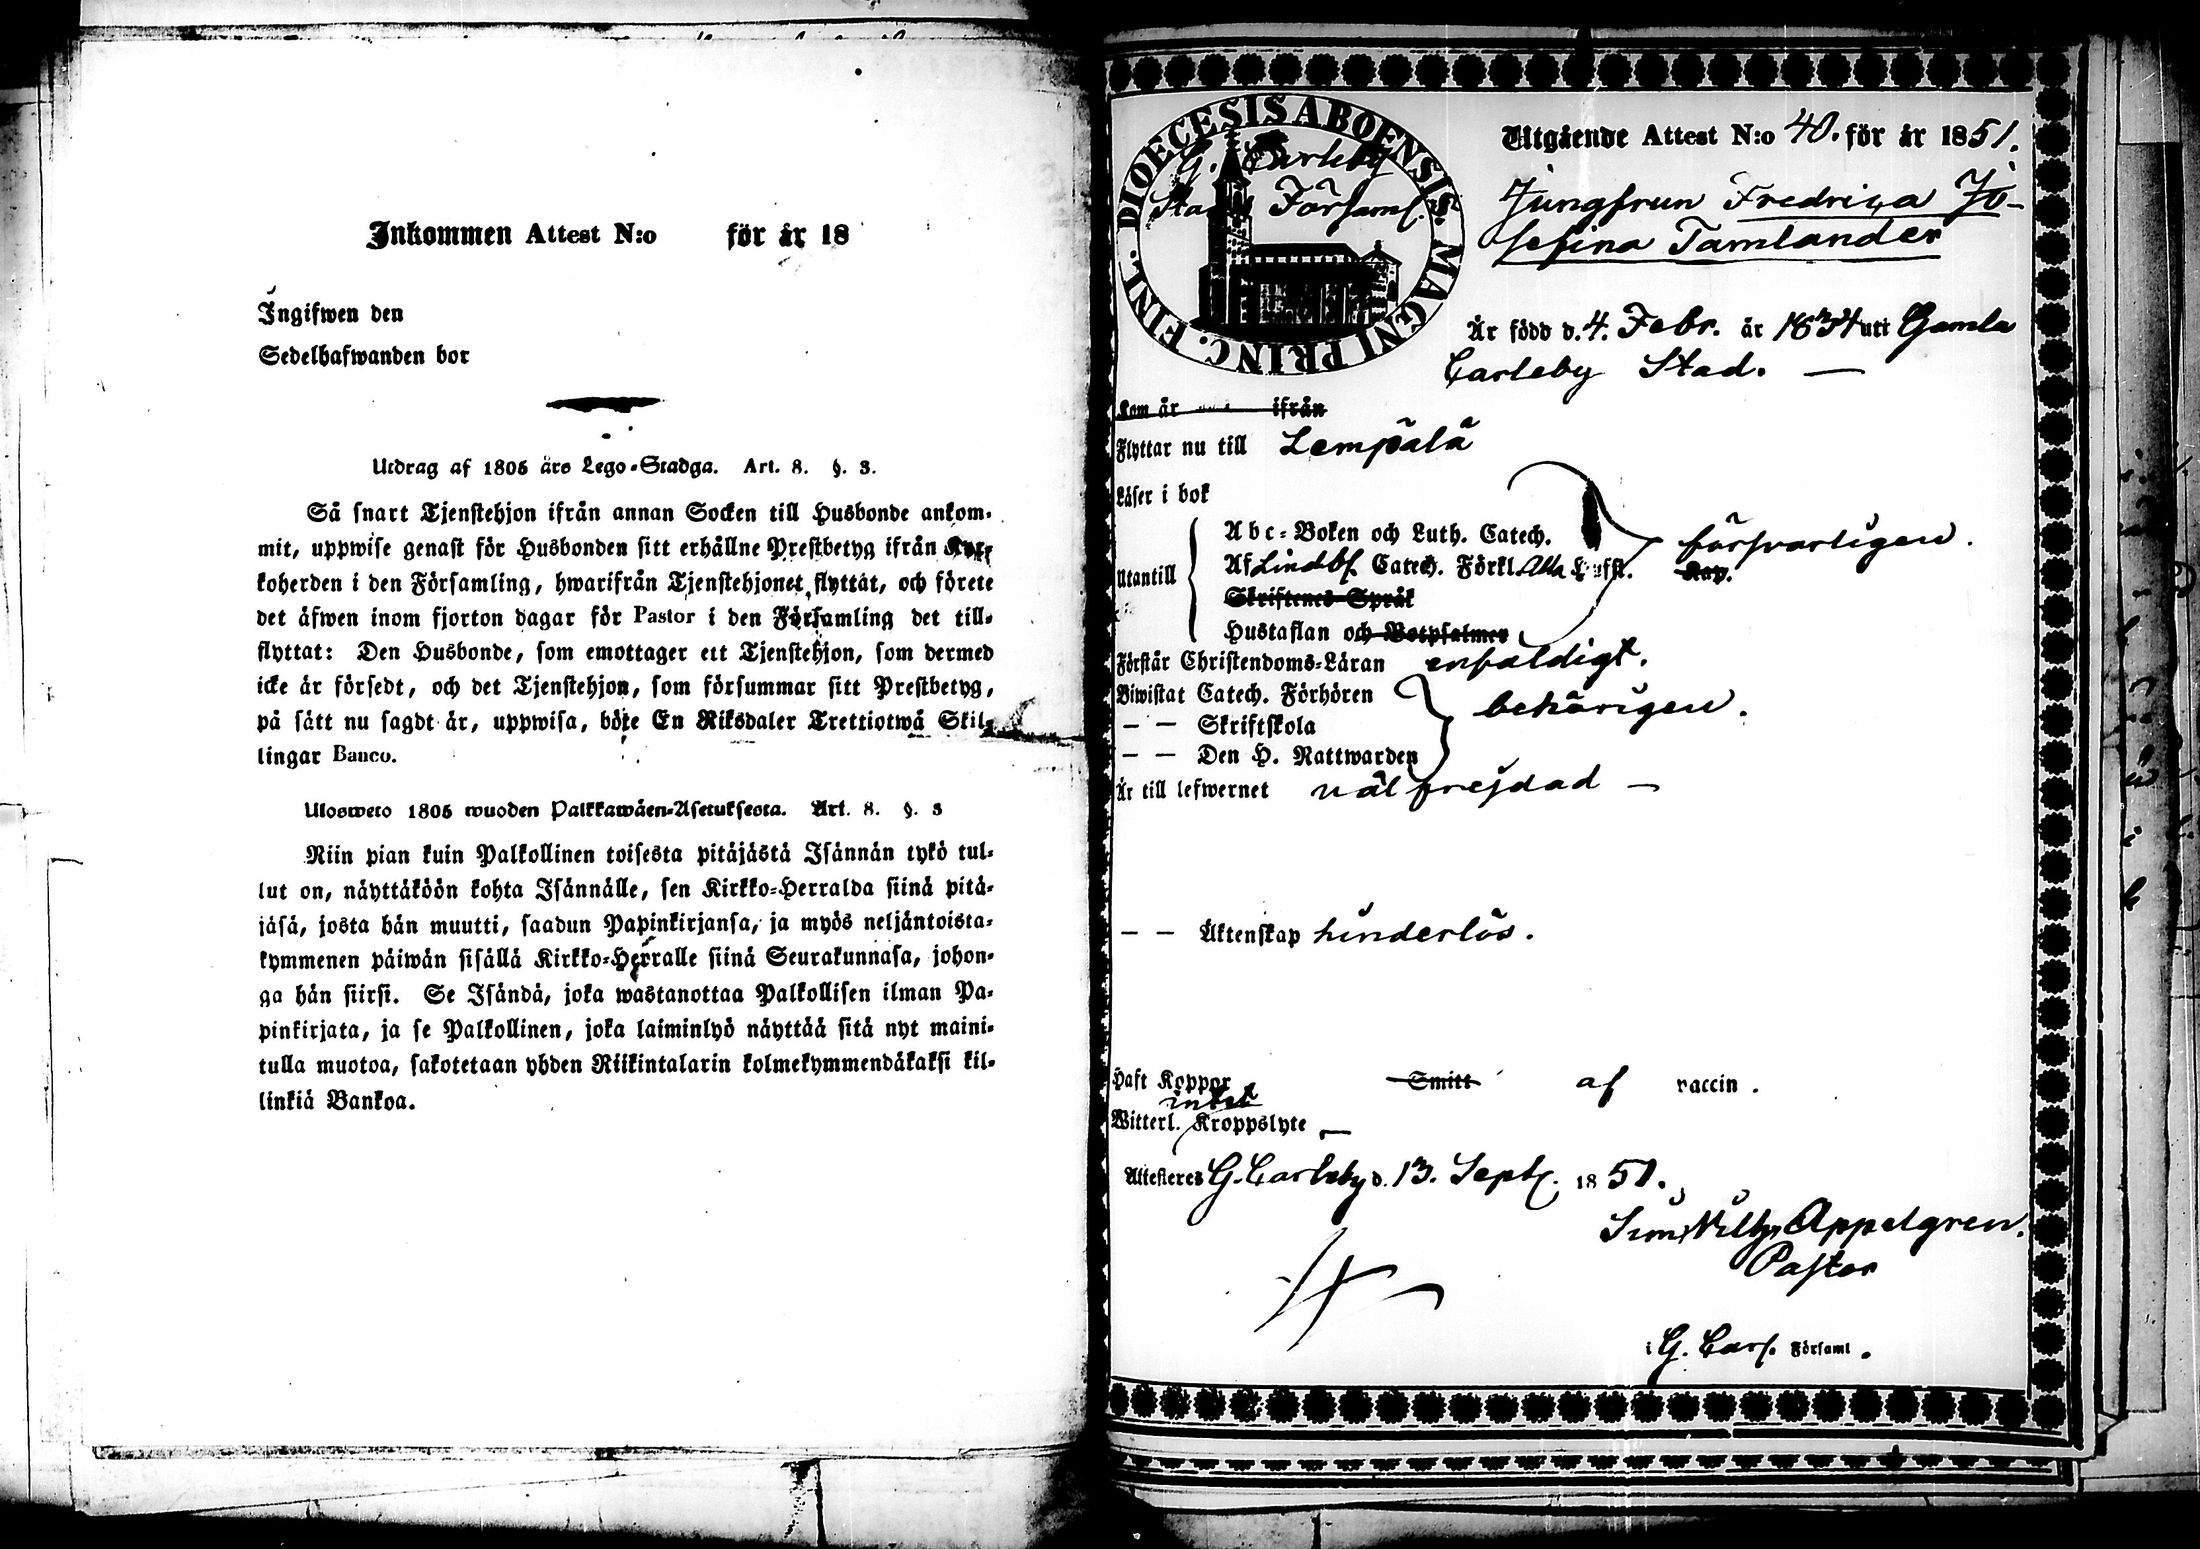 Inkommen Attest N:o för år 18
Ingifwen den
Sedelhafwanden bor
Utdrag af 1805 års Lego-Stadga. Art. 8. §. 3.
Så snart Tjenstehjon ifrån annan Socken till Husbonde ankom-
mit, uppwise genast för Husbonden sitt erhållne Prestbetyg ifrån Kyr-
koherden i den Församling, hwarifrån Tjenstehjonet flyttat, och förete
det äfwen inom fjorton dagar för Pastor i den Församling det till-
flyttat: Den Husbonde, som emottager ett Tjenstehjon, som dermed
icke är försedt, och det Tjenstehjon, som försummar sitt Prestbetyg,
på sätt nu sagdt är, uppwisa, böte En Riksdaler Trettiotwå Skil-
lingar Banco.
Ulosweto 1805 wuoden Palkkawäen-Asetuksesta. Art. 8. §. 3
Niin pian kuin Palkollinen toisesta pitäjästä Isännän tykö tul-
lut on, näyttäköön kohta Isännälle, sen Kirkko-Herralda siinä pitä-
jäsä, josta hän muutti, saadun Papinkirjansa, ja myös neljäntoista-
kymmenen päiwän sisällä Kirkko-Herralle siinä Seurakunnasa, johon-
ga hän siirsi. Se Isändä, joka wastanottaa Palkollisen ilman Pa-
pinkirjata, ja se Palkollinen, joka laiminlyö näyttää sitä nyt maini-
tulla muotoa, sakotetaan yhden Riikintalarin kolmekymmendäkaksi kil-
linkiä Bankoa.
DIOECESIS ABOENSIS. MAGNI PRINC. FINL.
G. Carleby
Stads Församl.
Utgående Attest N:o 40. för år 1851.
Jungfrun Fredrica Jo-
sefina Tamlander
Är född d. 4. Febr. år 1834 uti Gamla
Carleby Stad. —
Kom år ifrån
Flyttar nu till Lempälä
Läser i bok
Utantill
Abc-Boken och Luth. Catech.
Af Lindbl. Catech. Förkl. Alla Hufst. Kap.
Skriftenes Språk
Hustaflan och Botpsalmer
försvarligen.
Förstår Christendoms-Läran enfaldigt.
Biwistat Catech. Förhören
— — Skriftskola
— — Den H. Nattwarden
behörigen.
Är till lefwernet väl frejdad —
— — Äktenskap hinderlös.
Haft Koppor Smitt af vaccin.
intet
Witterl. Kroppslyte —
Attesteres G. Carleby d. 13. Sept. 1851.
Sim. Wilh. Appelgren.
Pastor
i G. Carl. Församl.